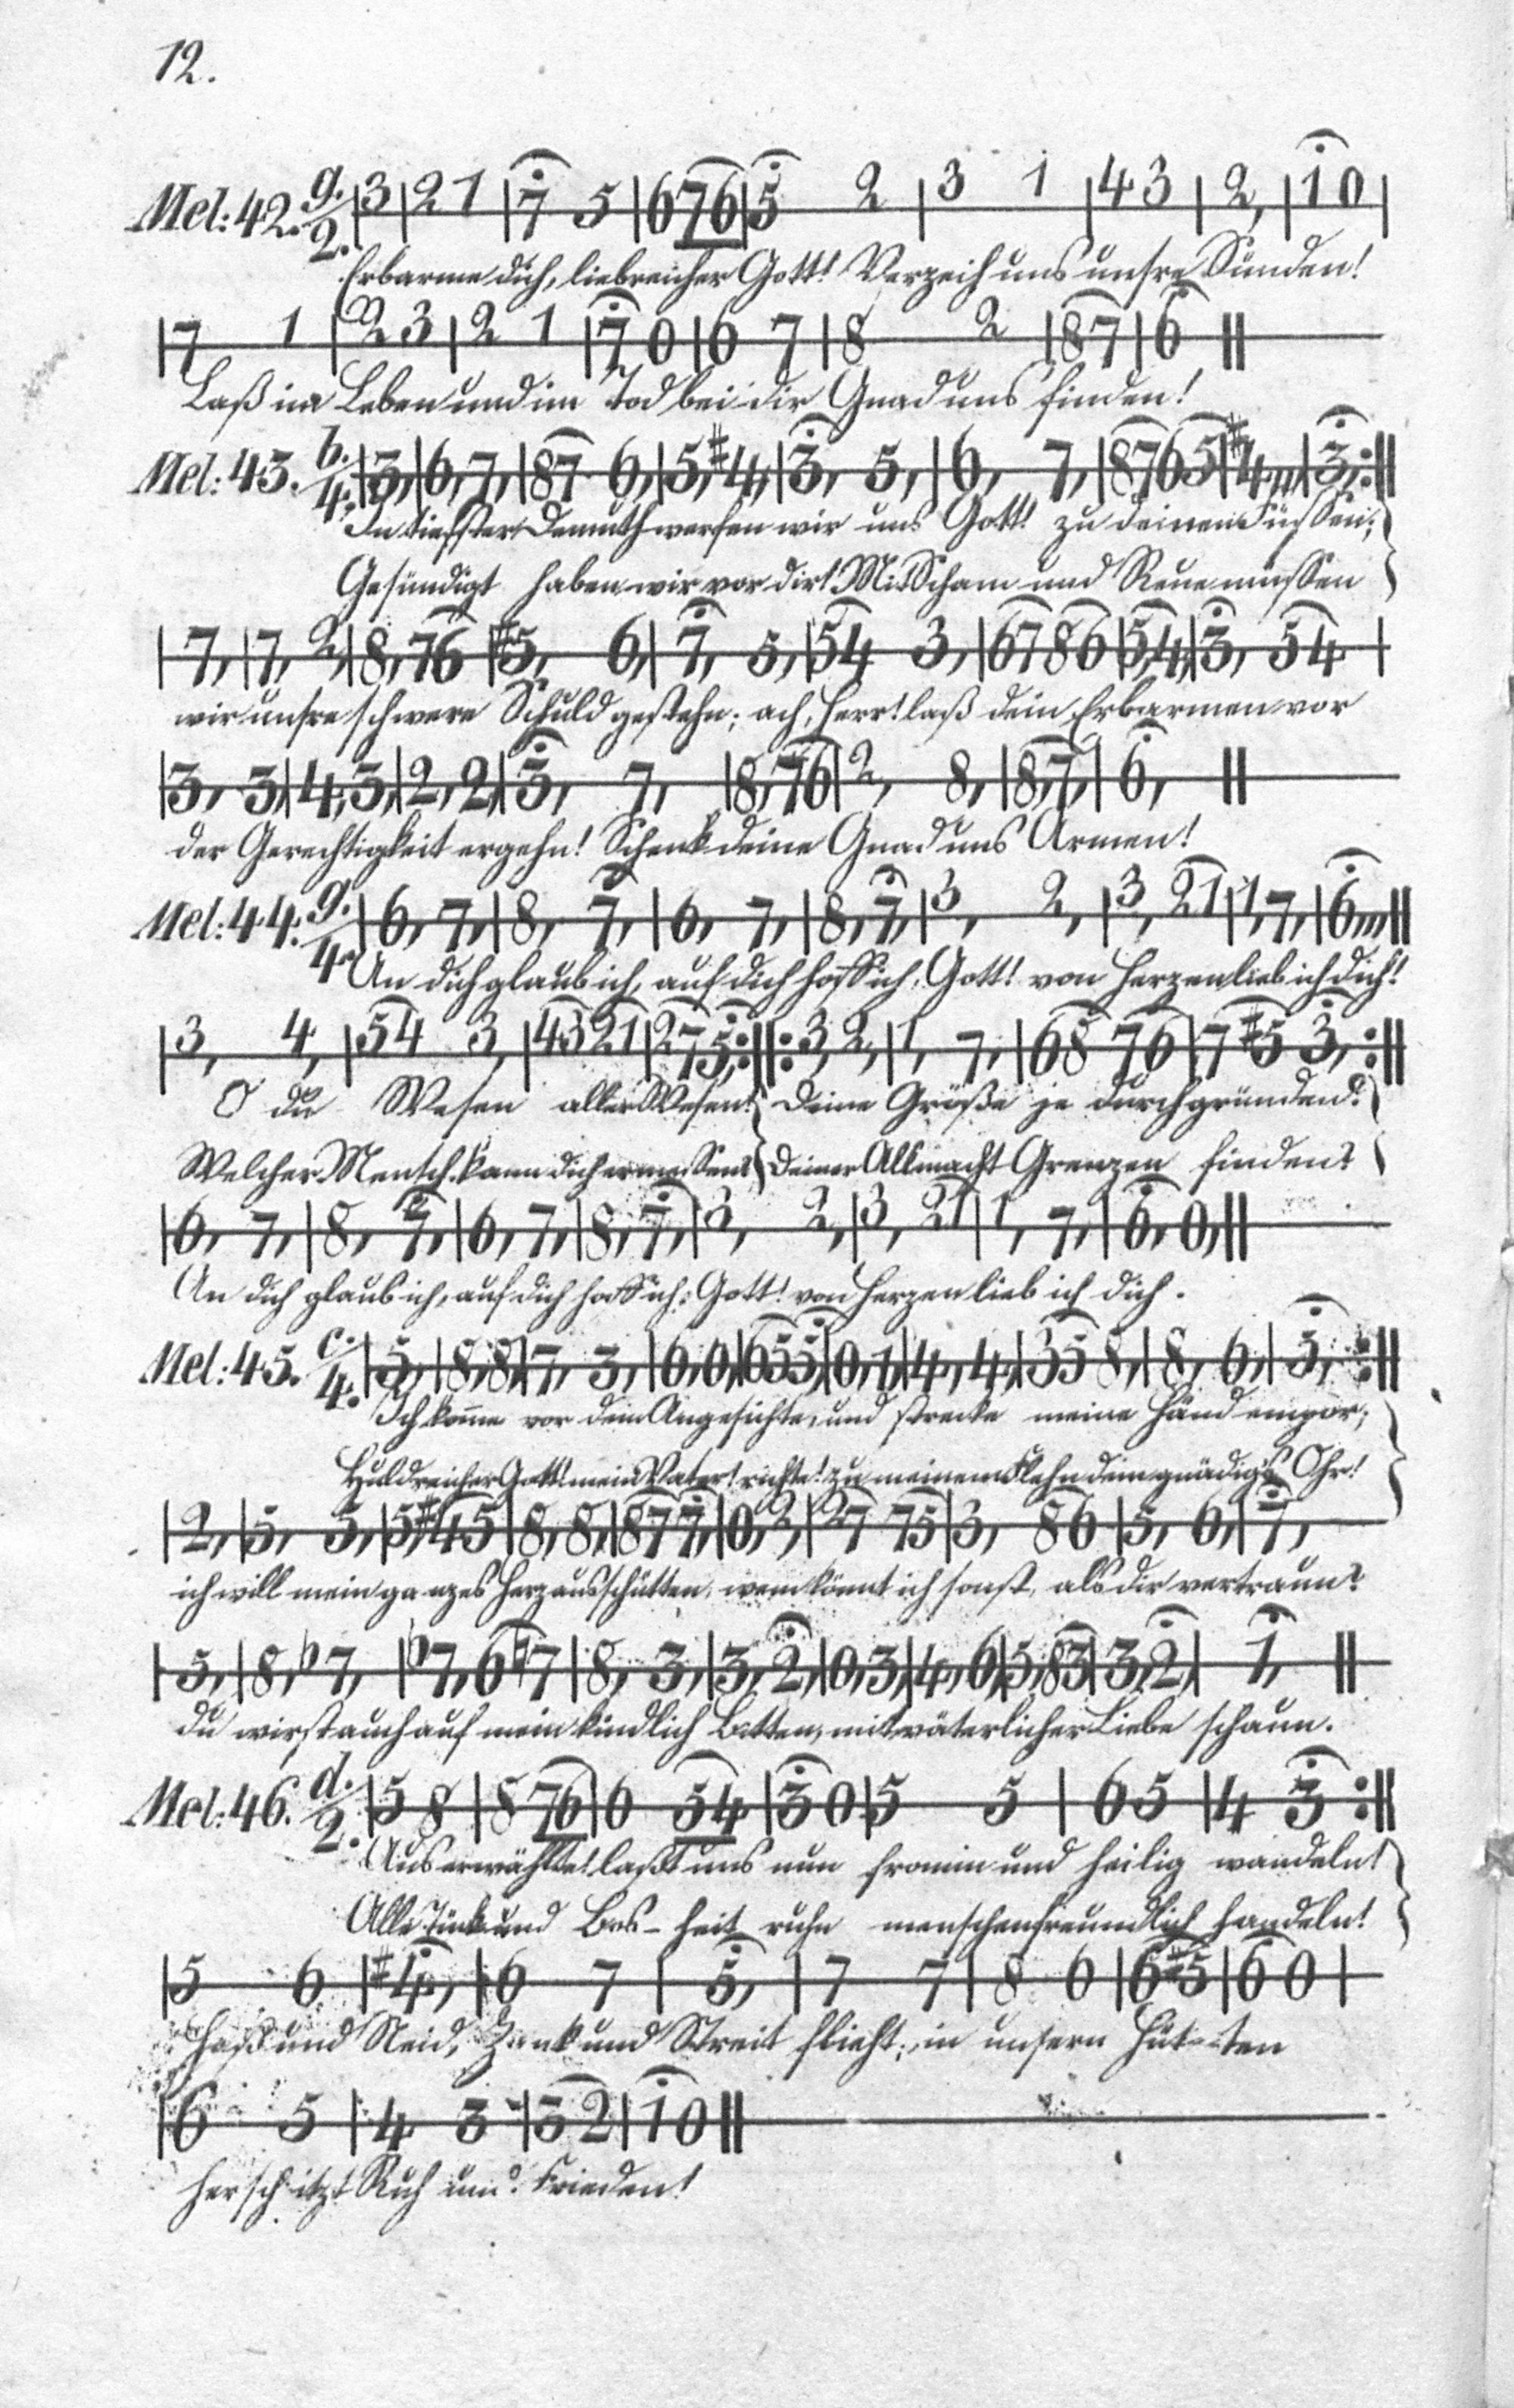 12.
Mel: 42. g. 2. |3|21|7 5|676|5 2|3 1|43|2,|10|
Erbarme dich, liebreicher Gott! Verzeih uns unsre Sünden!
|7 1|23|2 1|7 0|6 7|8 2|87|6 ||
Laß im Leben und im Tod bei dir Gnad uns finden!
Mel: 43. b. 4. |3,|6,7,|87 6,|5,#4,|3, 5,|6, 7,|8765|#4,,,|3,:||
In tiefster Demuth werfen wir uns Gott! zu deinen Füssen;
Gesündigt haben wir vor dir! Mit Scham und Reue müssen
|7,|7, 2,|8,76|#5, 6,|7, 5,|54 3,|6786|5,4,|3, 54|
wir unsre schwere Schuld gestehn; ach, Herr! laß dein Erbarmen vor
|3, 3,|4,3,|2,2,|3, 7,|8,76|2, 8,|8,7,|6, ||
der Gerechtigkeit ergehn! Schenk deine Gnad uns Armen!
Mel: 44. g. 4. |6, 7,|8, 7,|6, 7,|8,7,|3, 2,|3, 21|1,7,|6,,,||
An dich glaub ich, auf dich hoff ich, Gott! von Herzen lieb ich dich!
|3, 4,|54 3,|4321|275,:||:3,2,|1, 7,|68 76|7#5 3,:||
O du Wesen aller Wesen! deine Größe je durchgründen?
Welcher Mensch kann dich ermessen? deiner Allmacht Grenzen finden?
|6, 7,|8, 7,|6, 7,|8,7,|3, 2,|3, 21|1, 7,|6, 0,||
An dich glaub ich, auf dich hoff ich: Gott! von Herzen lieb ich dich.
Mel: 45. c. 4. |5,|8,8,|7, 3,|6,6,|655,|0,1,|4,4,|35 8,|8, 6,|5,:||
Ich komme vor dein Angesichte, und strecke meine Händ empor;
Huldreicher Gott! mein Vater! richte! zu meinem Flehn dein gnädigs Ohr!
|2,|5, 5,|5,#45|8,8,|877,|0,2,|27 75|3, 86|5, 6,|7,
ich will mein ganzes Herz ausschütten, wem könnt ich sonst, als dir vertraun?
|5,|8,♭7,|♭7,6#7|8, 3,|3,2,|0,3,|4,6,|5,83|3,2,|1, ||
du wirst auch auf mein kindlich Betten, mit väterlicher Liebe schaun.
Mel: 46. d. 2. |5 8|8 76|6 54|30|5 5|65|4 3:||
Auserwählte! laßt uns nun fromm und heilig wandeln!
Alle Tück und Bos-heit ruhn menschenfreundlich handeln!
|5 6|#4,|6 7|5,|7 7|8 6|6#5|60|
Haß und Neid, Zank und Streit flieht; in unsern Hüt-ten
|6 5|4 3|32|10||
hersch itzt Ruh und Frieden!